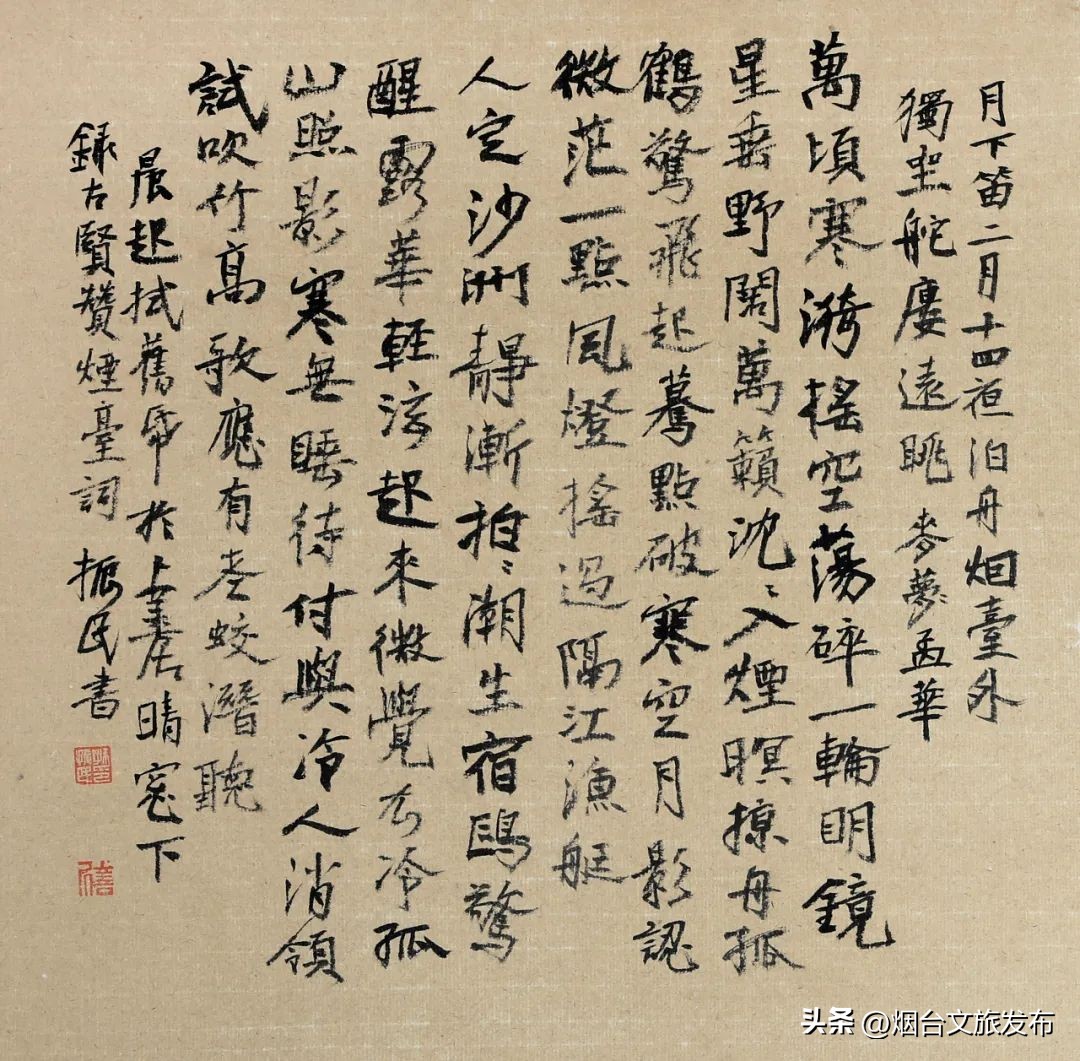 月下笛二月十四夜泊舟烟臺外
獨坐舵廔遠眺 麥夢孟華
萬頃寒漪搖空蕩碎一輪明鏡
星垂野闊萬籟沈〻入煙暝掠舟孤
鶴驚飛起驀點破寒空月影認
微茫一點風燈搖過隔江漁艇
人定沙洲靜漸拍〻潮生宿鷗驚
醒露華輕泫起來微覺衣冷孤
山照影寒無睡待付與冷人消領
試吹竹高歌應有老蛟潛聽
晨起拭舊帋於上善居晴窗下
錄古賢贊煙臺詞 振民書
头条 @烟台文旅发布